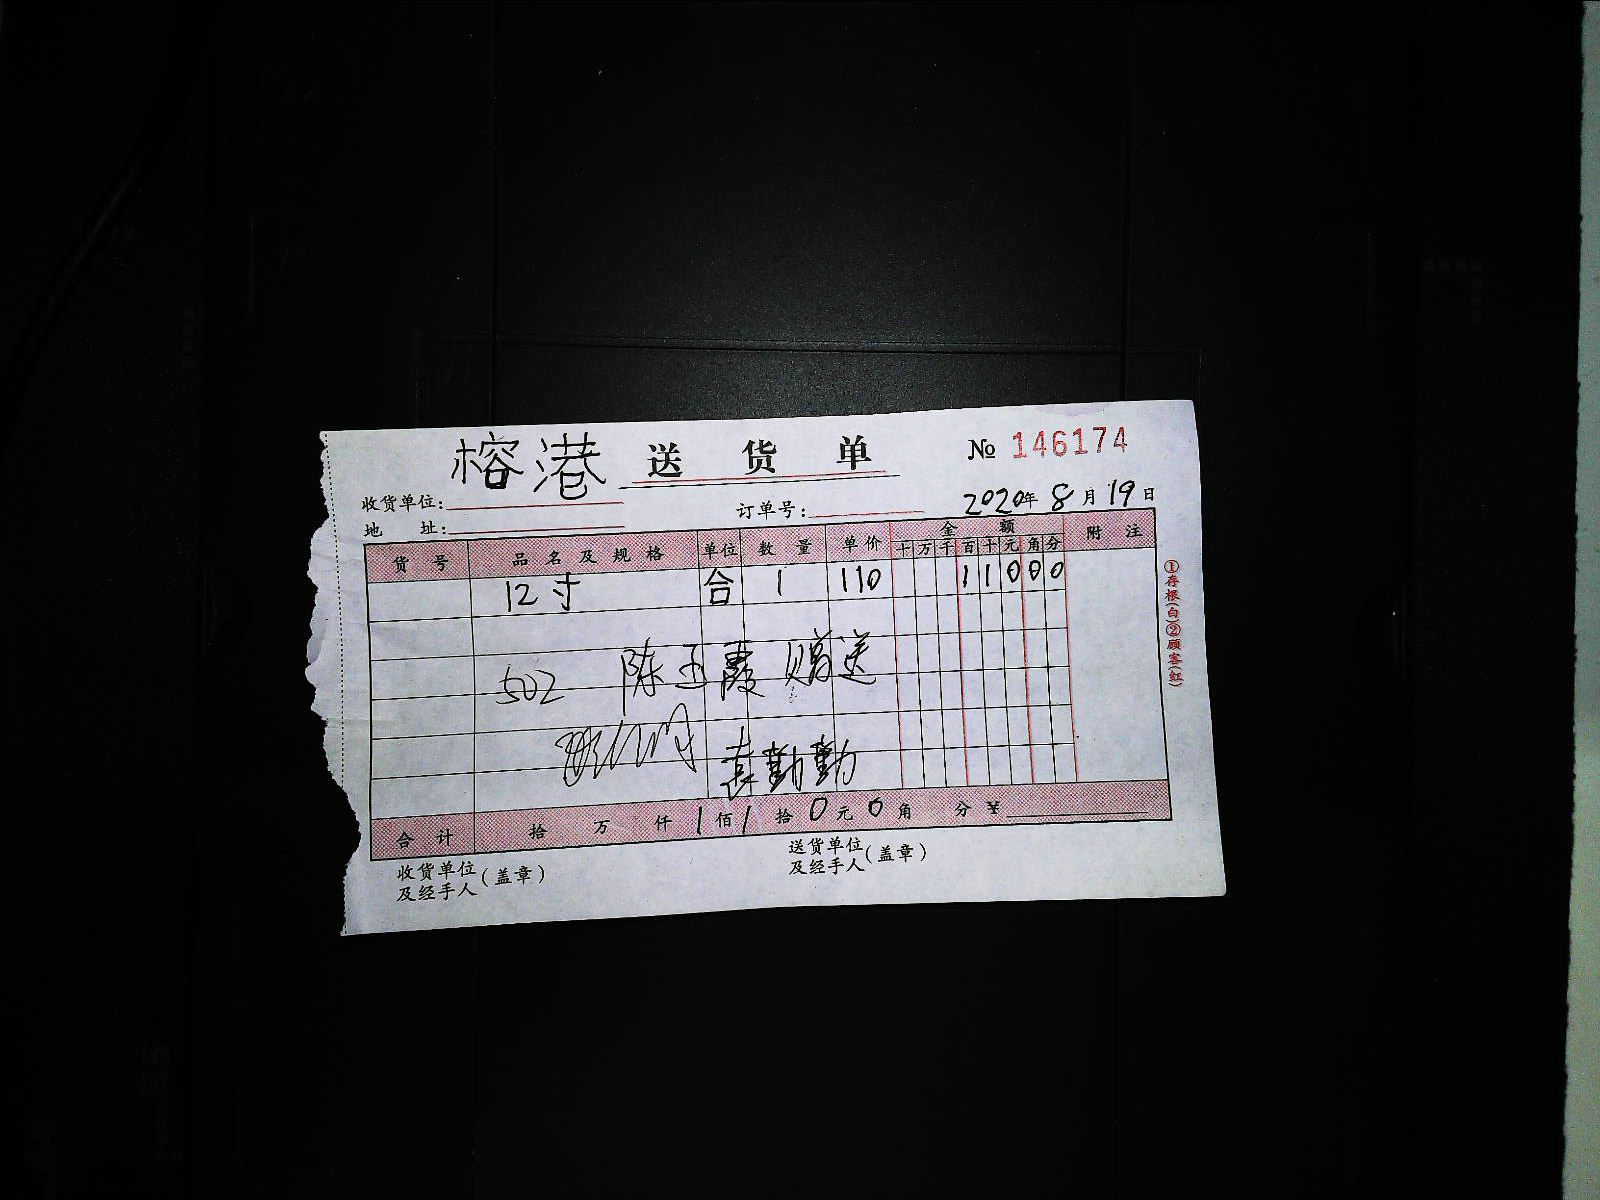 榕港 送货单 № 146174
收货单位: 订单号: 2020年8月19日
地址:
货号 品名及规格 单位 数量 单价 金额 附注
十 万 千 百 十 元 角 分
12寸 合 1 110 1 1 0 0 0
502 陈玉霞 赠送
袁勤勤
合计 拾 万 仟 1 佰 1 拾 0 元 0 角 分 ¥
收货单位及经手人(盖章) 送货单位及经手人(盖章)
①存根(白)②顾客(红)